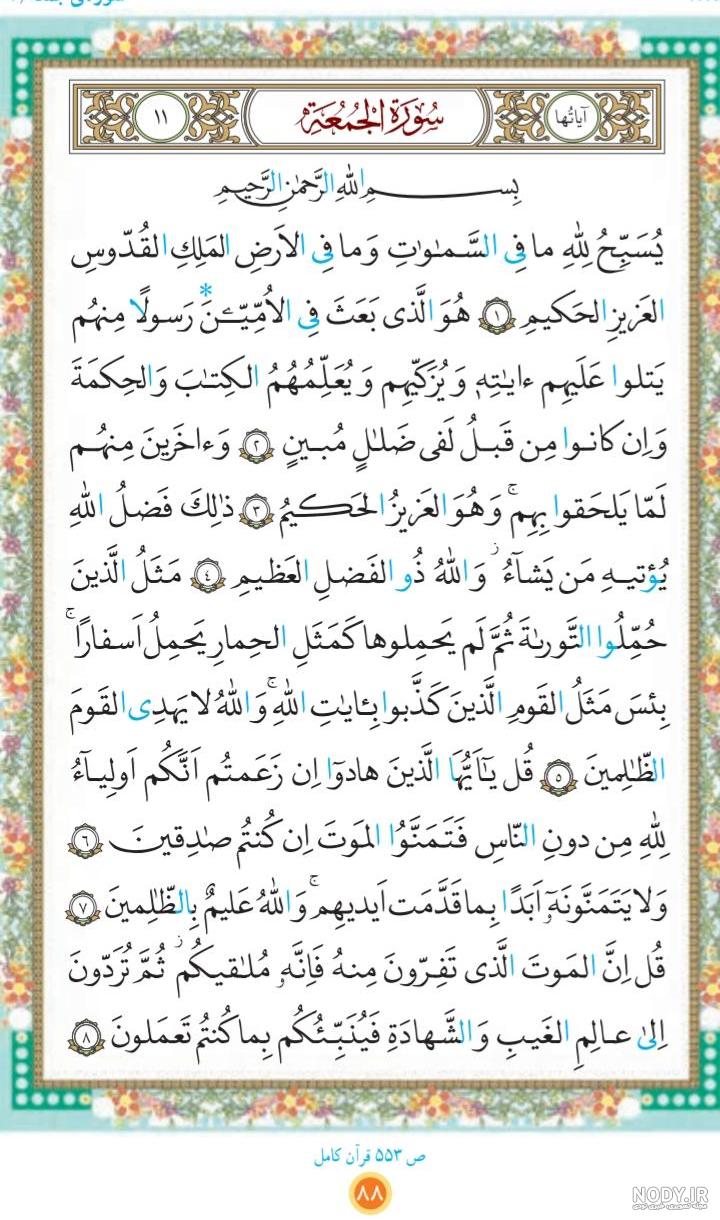 آیاتُها سُورَةُ الجُمُعَةِ ١١
بِسمِ اللهِ الرَّحمٰنِ الرَّحيمِ
يُسَبِّحُ لِلّٰهِ ما فِى السَّمٰوٰتِ وَ ما فِى الاَرضِ المَلِكِ القُدّوسِ
العَزيزِ الحَكيمِ ١ هُوَ الَّذى بَعَثَ فِى الاُمِّيّـۧنَ * رَسولًا مِنهُم
يَتلوا عَلَيهِم ءايٰتِهٖ وَ يُزَكّيهِم وَ يُعَلِّمُهُمُ الكِتٰبَ وَ الحِكمَةَ
وَ اِن كانوا مِن قَبلُ لَفى ضَلٰلٍ مُبينٍ ٢ وَ ءاخَرينَ مِنهُم
لَمّا يَلحَقوا بِهِم ۚ وَ هُوَ العَزيزُ الحَكيمُ ٣ ذٰلِكَ فَضلُ اللهِ
يُؤتيهِ مَن يَشآءُ ۚ وَ اللهُ ذُو الفَضلِ العَظيمِ ٤ مَثَلُ الَّذينَ
حُمِّلُوا التَّورىٰةَ ثُمَّ لَم يَحمِلوها كَمَثَلِ الحِمارِ يَحمِلُ اَسفارًا ۚ
بِئسَ مَثَلُ القَومِ الَّذينَ كَذَّبوا بِـٔايٰتِ اللهِ ۚ وَ اللهُ لا يَهدِى القَومَ
الظّٰلِمينَ ٥ قُل يٰٓاَيُّهَا الَّذينَ هادوٓا اِن زَعَمتُم اَنَّكُم اَولِيـآءُ
لِلّٰهِ مِن دونِ النّاسِ فَتَمَنَّوُا المَوتَ اِن كُنتُم صٰدِقينَ ٦
وَ لا يَتَمَنَّونَهٗٓ اَبَدًا بِما قَدَّمَت اَيديهِم ۚ وَ اللهُ عَليمٌ بِالظّٰلِمينَ ٧
قُل اِنَّ المَوتَ الَّذى تَفِرّونَ مِنهُ فَاِنَّهٗ مُلٰقيكُم ۖ ثُمَّ تُرَدّونَ
اِلىٰ عالِمِ الغَيبِ وَ الشَّهادَةِ فَيُنَبِّئُكُم بِما كُنتُم تَعمَلونَ ٨
ص ٥٥٣ قرآن کامل
٨٨
NODY.IR